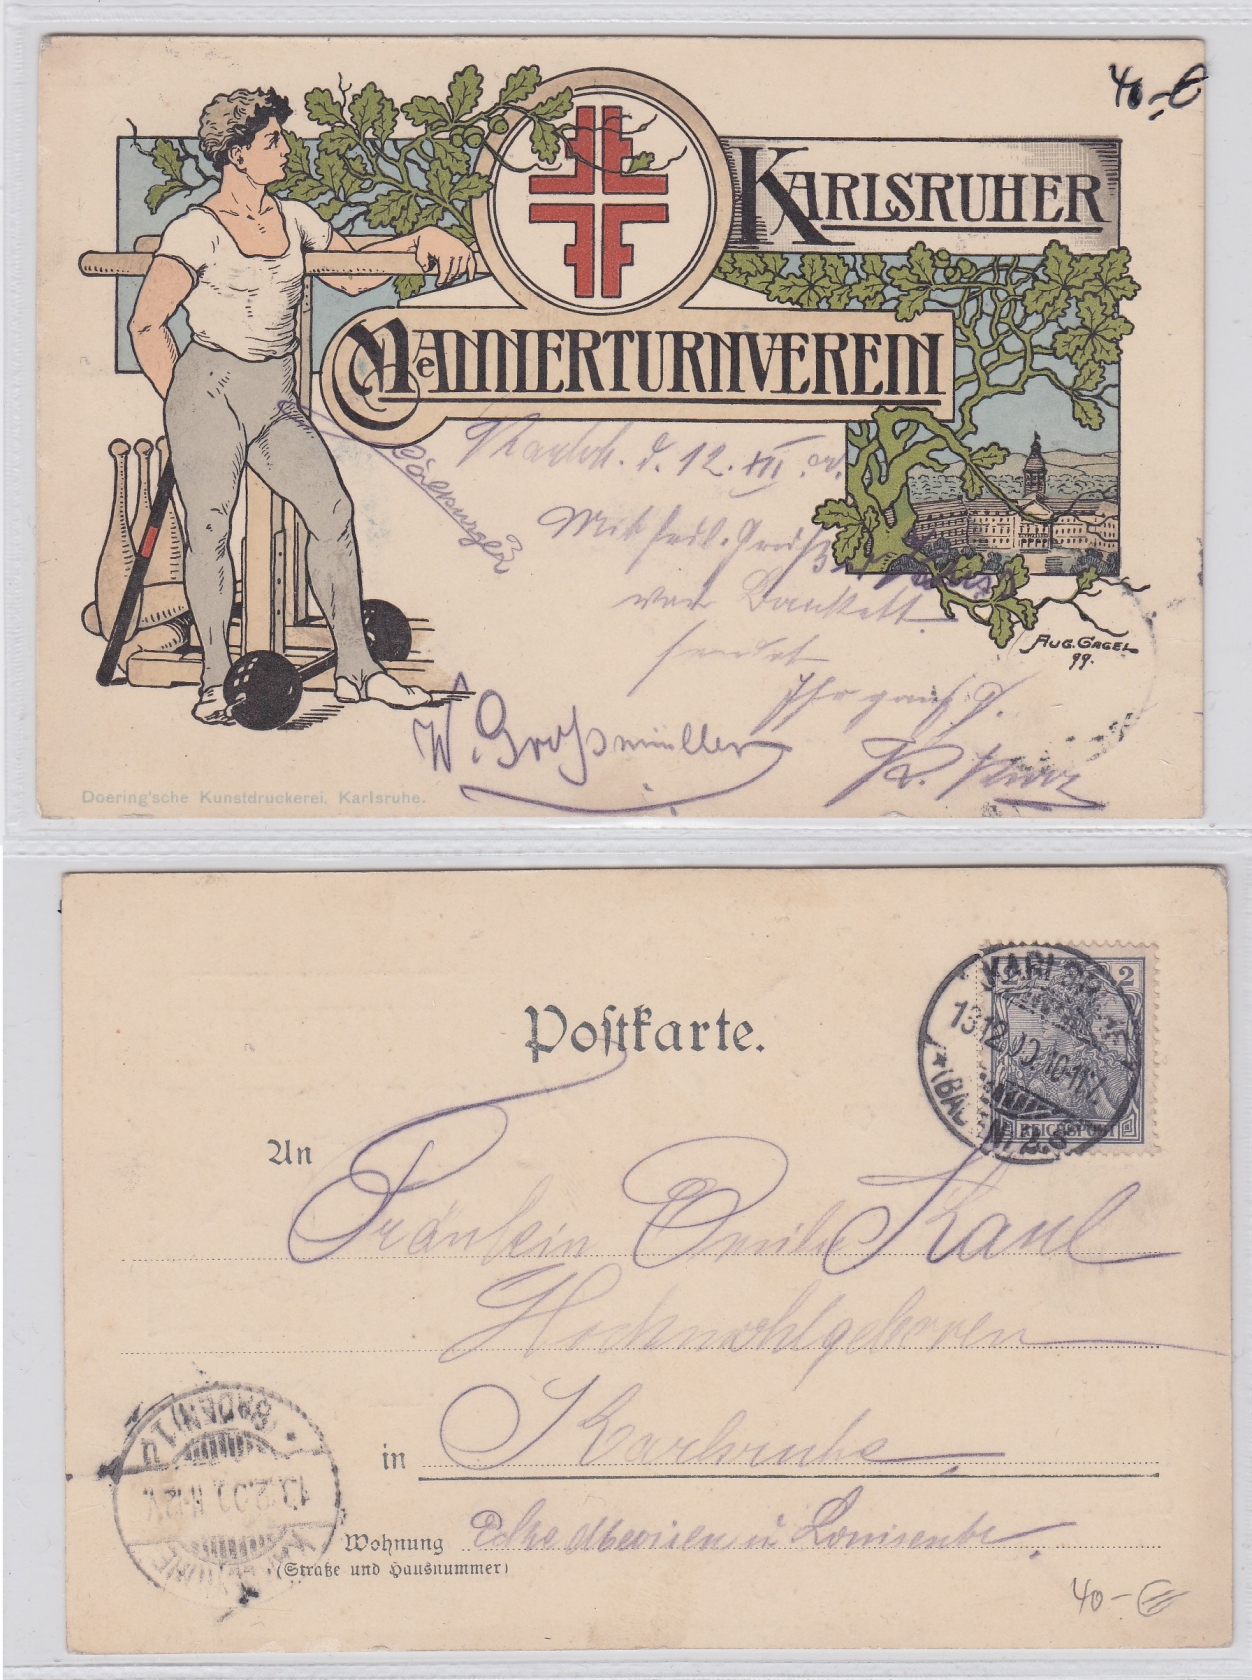 40,-€
KARLSRUHER
MAeNNERTURNVEREIN
Karlsr. d. 12. XII. 00.
Mit frdl. Grüßen
vom Bankett
sendet
Ihr ganz erg.
W. Großmüller
K. Kurz
AUG. GAGEL
99.
Doering'sche Kunstdruckerei, Karlsruhe.
Postkarte.
2 2
REICHSPOST
KARLSRUHE
13.12.00. 10-11V.
*(BADEN) 2.
An Fräulein Emilie Kaul
Hochwohlgeboren
in Karlsruhe
Wohnung Ecke u Louisenstr.
(Straße und Hausnummer)
KARLSRUHE
13.12.00. 11-12V.
(BADEN) 1
40-€